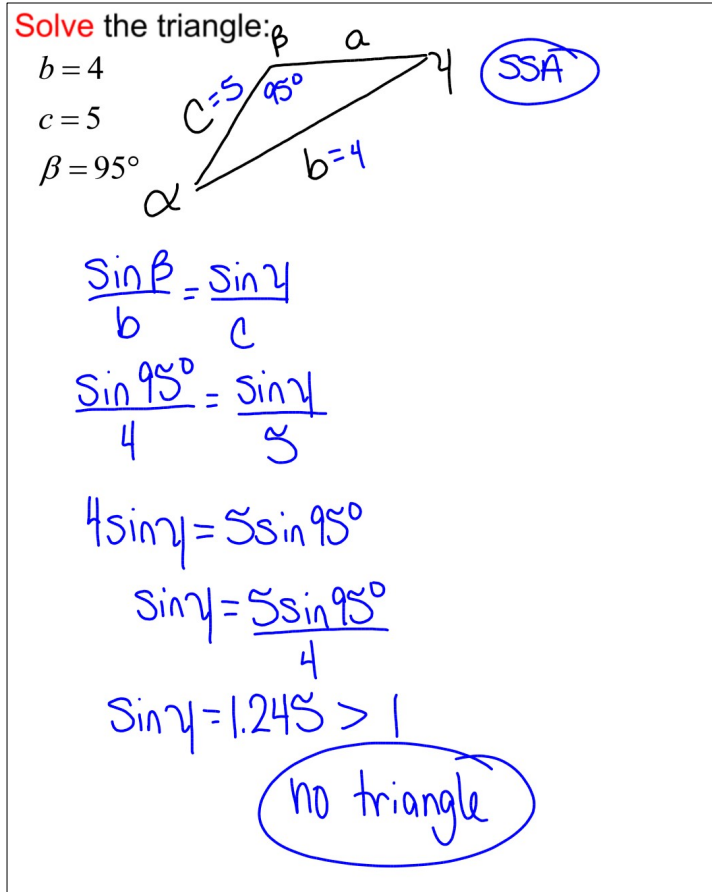 Solve the triangle:
b = 4
c = 5
β = 95°
β
a
γ
SSA
C=5
95°
b=4
α
sin β / b = sin γ / c
sin 95° / 4 = sin γ / 5
4 sin γ = 5 sin 95°
sin γ = 5 sin 95° / 4
sin γ = 1.245 > 1
no triangle